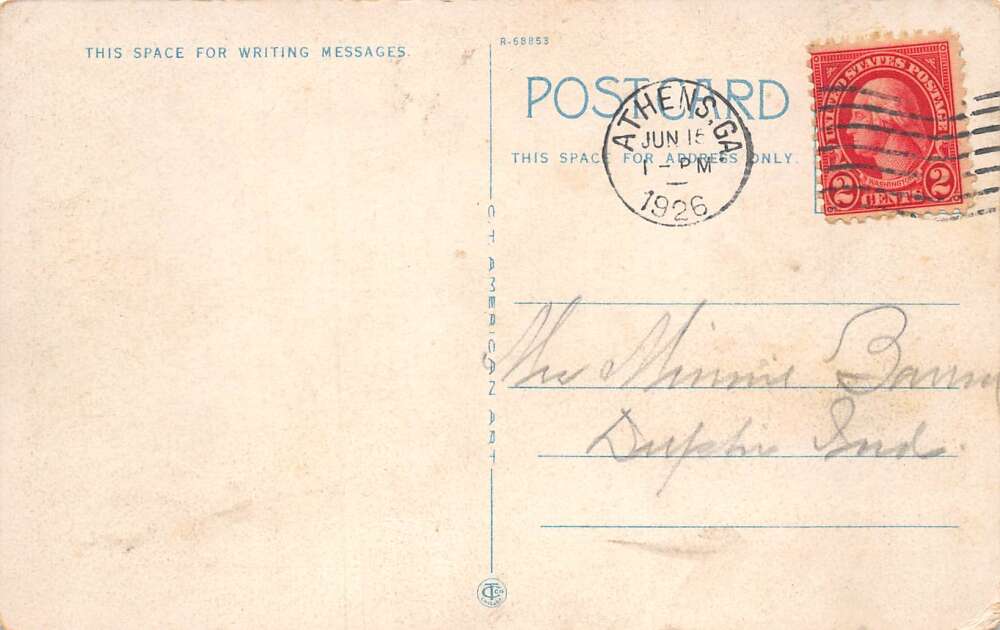 THIS SPACE FOR WRITING MESSAGES.
R-68853
POSTCARD
THIS SPACE FOR ADDRESS ONLY.
ATHENS, GA
JUN 15
1-PM
1926
UNITED STATES POSTAGE
WASHINGTON
2 CENTS 2
C.T. AMERICAN ART
Minnie
Ind.